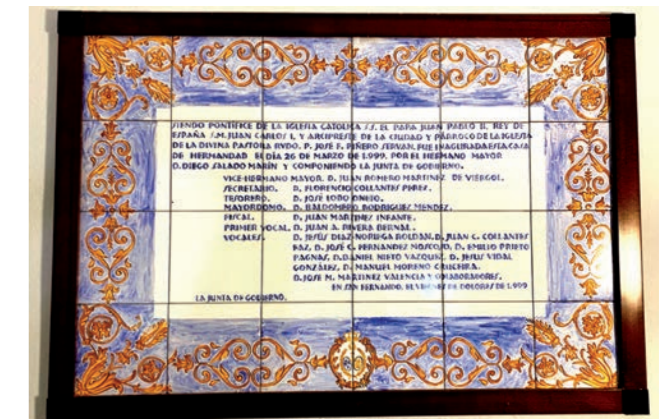 SIENDO PONTIFICE DE LA IGLESIA CATOLICA S.S. EL PAPA JUAN PABLO II, REY DE
ESPAÑA S.M. JUAN CARLOS I, Y ARCIPRESTE DE LA CIUDAD Y PÁRROCO DE LA IGLESIA
DE LA DIVINA PASTORA RVDO. P. JOSÉ F. PIÑERO SERVAN, FUE INAGURADA ESTA CASA
DE HERMANDAD EL DÍA 26 DE MARZO DE 1.999. POR EL HERMANO MAYOR
D. DIEGO SALADO MARÍN Y COMPONIENDO LA JUNTA DE GOBIERNO.
VICE-HERMANO MAYOR. D. JUAN ROMERO MARTINEZ DE VIERGOL.
SECRETARIO. D. FLORENCIO COLLANTES PERES.
TESORERO. D. JOSÉ LOBO
MAYORDOMO. D. BALDOMERO RODRIGUEZ MENDEZ.
FISCAL. D. JUAN MARTINEZ INFANTE.
PRIMER VOCAL. D. JUAN A. RIVERA BERNAL.
VOCALES. D. JESÚS DIAZ-NORIEGA ROLDAN. D. JUAN C. COLLANTES
PAZ, D. JOSÉ C. FERNANDEZ MOSCOSO, D. EMILIO PRIETO
D. DANIEL NIETO VAZQUEZ, D. JESUS VIDAL
GONZÁLES, D. MANUEL MORENO
D. JOSE M. MARTINEZ VALENCIA Y COLABORADORES.
EN SAN FERNANDO, EL VIERNES DE DOLORES DE 1.999
LA JUNTA DE GOBIERNO.